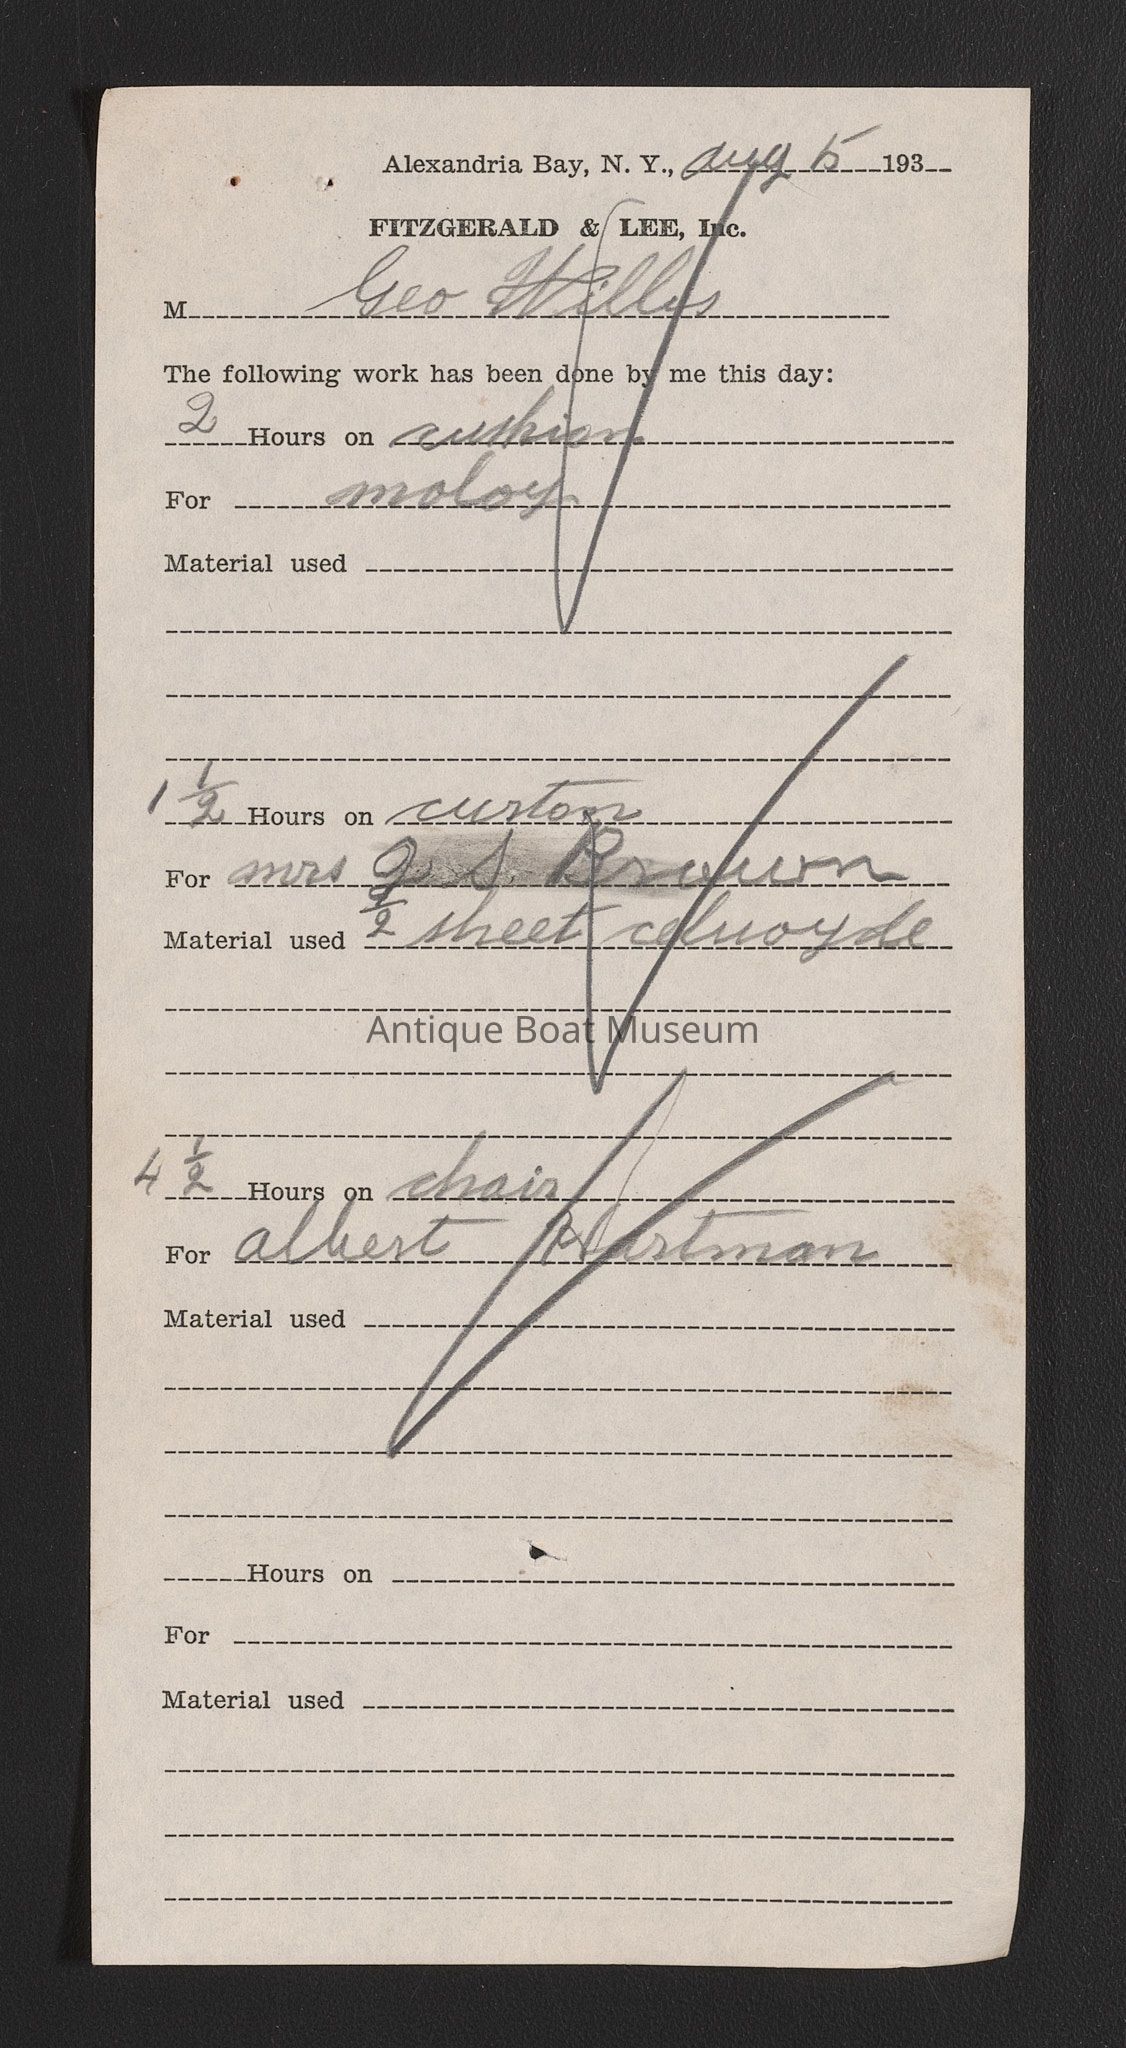 Alexandria Bay, N. Y., aug 5 193
FITZGERALD & LEE, Inc.
M Geo Willis
The following work has been done by me this day:
2 Hours on cushion
For moloy
Material used
1 1/2 Hours on curton
For mrs J S. Brown
Material used 1/2 sheet celuoyde
Antique Boat Museum
4 1/2 Hours on chair
For albert Hartman
Material used
Hours on
For
Material used